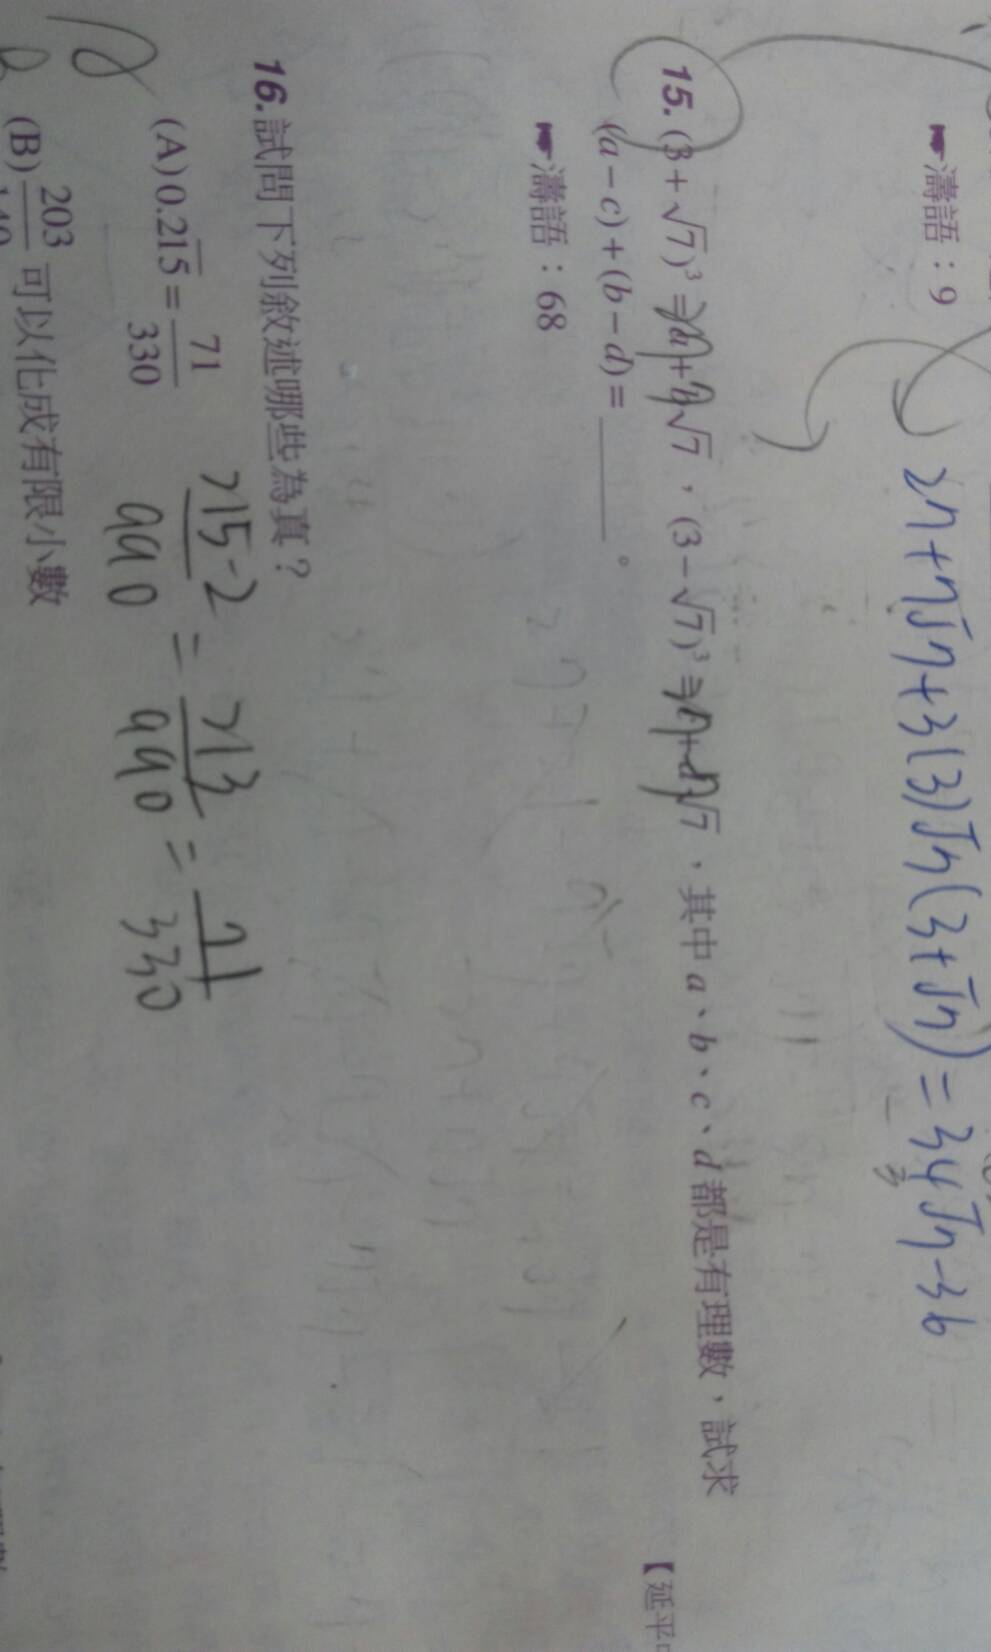 ☛濤語：9
27+7√7+3(3)√7(3+√7)=34√7-36
15.(3+√7)³=a+b√7，(3-√7)³=c+d√7，其中a、b、c、d都是有理數，試求
(a-c)+(b-d)=______。
【延平
☛濤語：68
16.試問下列敘述哪些為真？
(A)0.2\overline{15}=71/330
215-2/990=213/990=71/330
(B)203/140可以化成有限小數